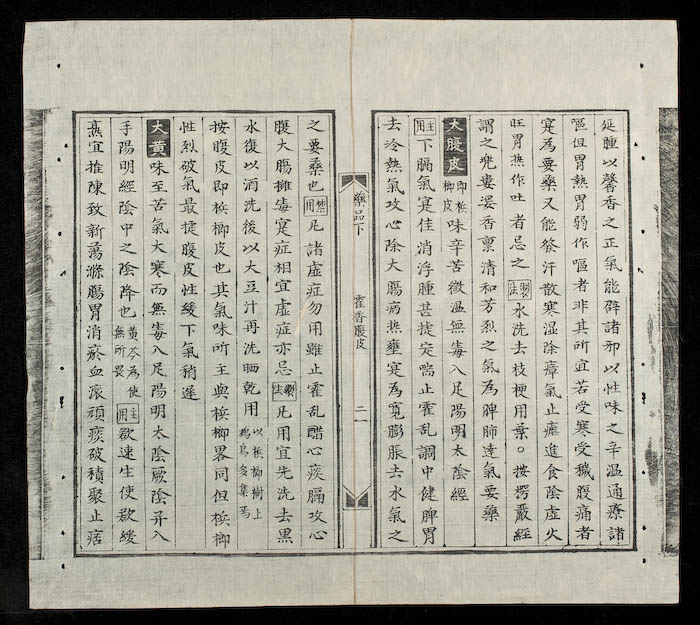 延腫以馨香之正氣能辟諸邪以性味之辛温通療諸
嘔但胃熱胃弱作嘔者非其所宜若受寒受穢腹痛者
寔為要藥又能發汗散寒湿除瘴氣止瘧進食陰虛火
旺胃热作吐者忌之 製法 水洗去枝梗用葉○按楞嚴經
謂之兜婁婆香禀清和芳烈之氣為脾肺達氣要藥
大腹皮 即梹榔皮 味辛苦微温無毒入足陽明太陰經
主用 下膈氣寔佳消浮腫甚捷定喘止霍乱調中健脾胃
去冷熱氣攻心除大腸病热壅寔為寬膨脹去水氣之
藥品下 霍香腹皮 二一
之要藥也 禁用 凡諸虛症勿用雖止霍乱醋心痰膈攻心
腹大腸擁毒寔症相宜虛症亦忌 製法 凡用宜先洗去黒
水復以酒洗後以大豆汁再洗晒乾用 以梹榔樹上鴆鳥多集焉
按腹皮即梹榔皮也其氣味所主與梹榔畧同但梹榔
性烈破氣最捷腹皮性緩下氣稍遲
大黄 味至苦氣大寒而無毒入足陽明太陰厥陰并入
手陽明經陰中之陰降也 黄芩為使無所畏 主用 欲速生使欲緩
熟宜推陳致新蕩滌腸胃消瘀血滚頑痰破積聚止痞